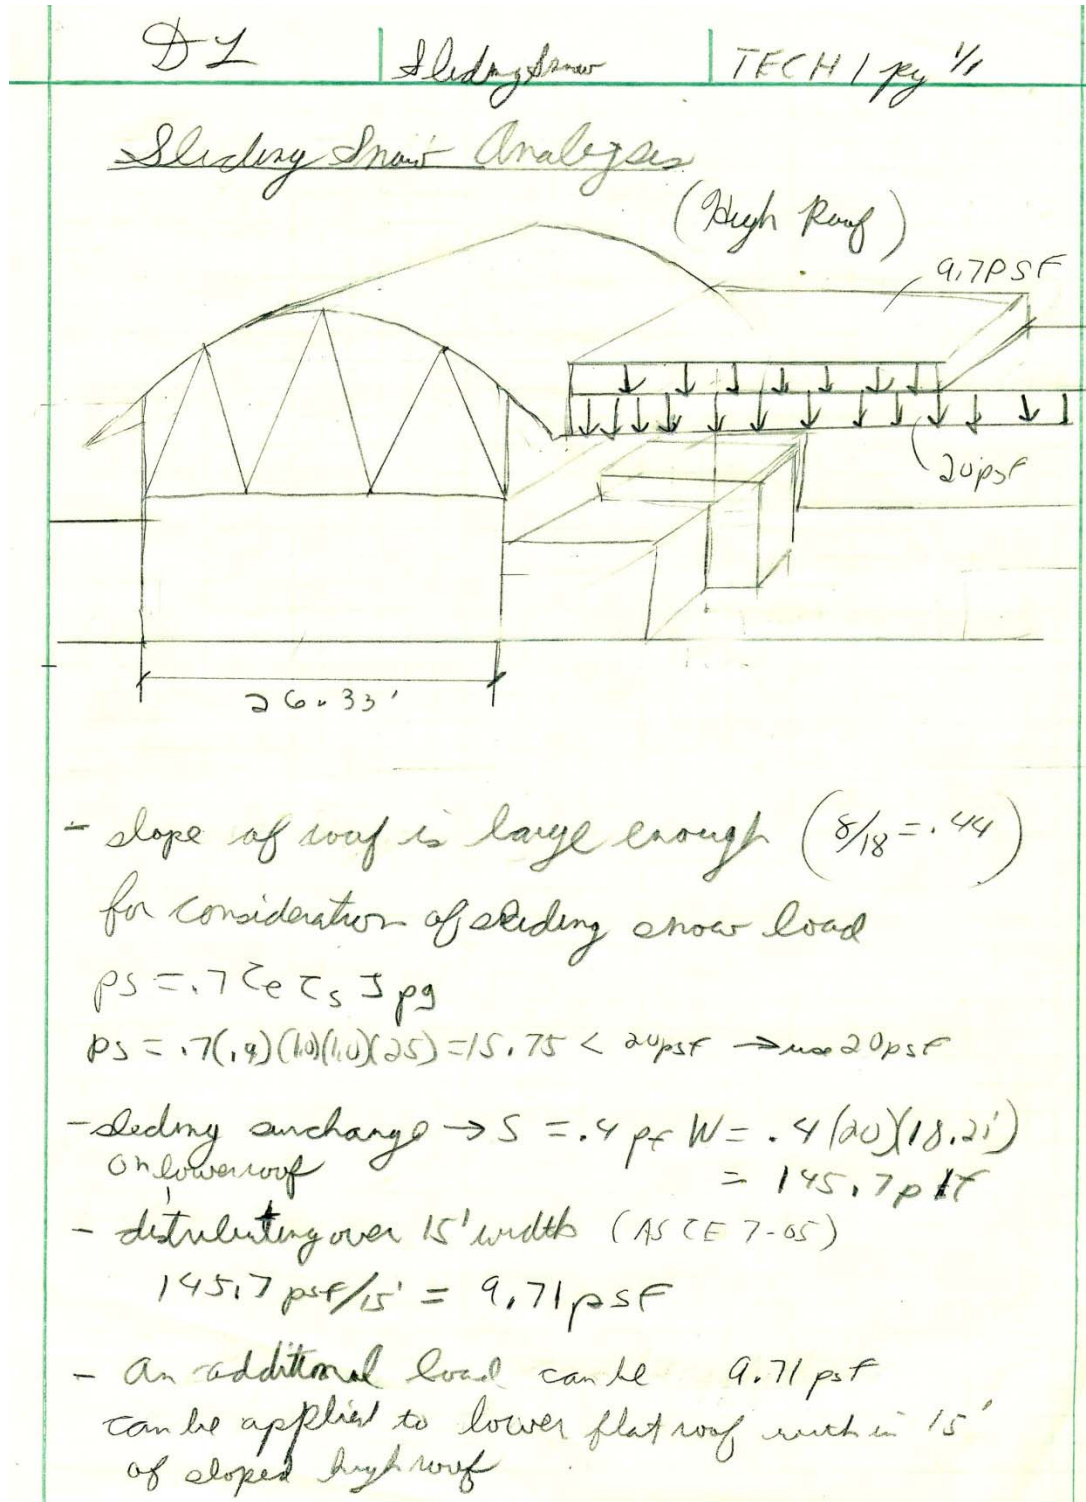 DL
Sliding Snow
TECH 1 pg 1/1
Sliding Snow Analysis
(High Roof)
9.7PSF
20psf
26.33'
- slope of roof is large enough (8/18 = .44)
for consideration of sliding snow load
ps = .7 Ce Cs I pg
ps = .7(.9)(1.0)(1.0)(25) = 15.75 < 20psf → use 20psf
- sliding surcharge → S = .4 pf W = .4(20)(18.21')
on lower roof
= 145.7 plf
- distributing over 15' width (ASCE 7-05)
145.7 psf/15' = 9.71psf
- An additional load can be 9.71 psf
can be applied to lower flat roof with in 15'
of sloped high roof